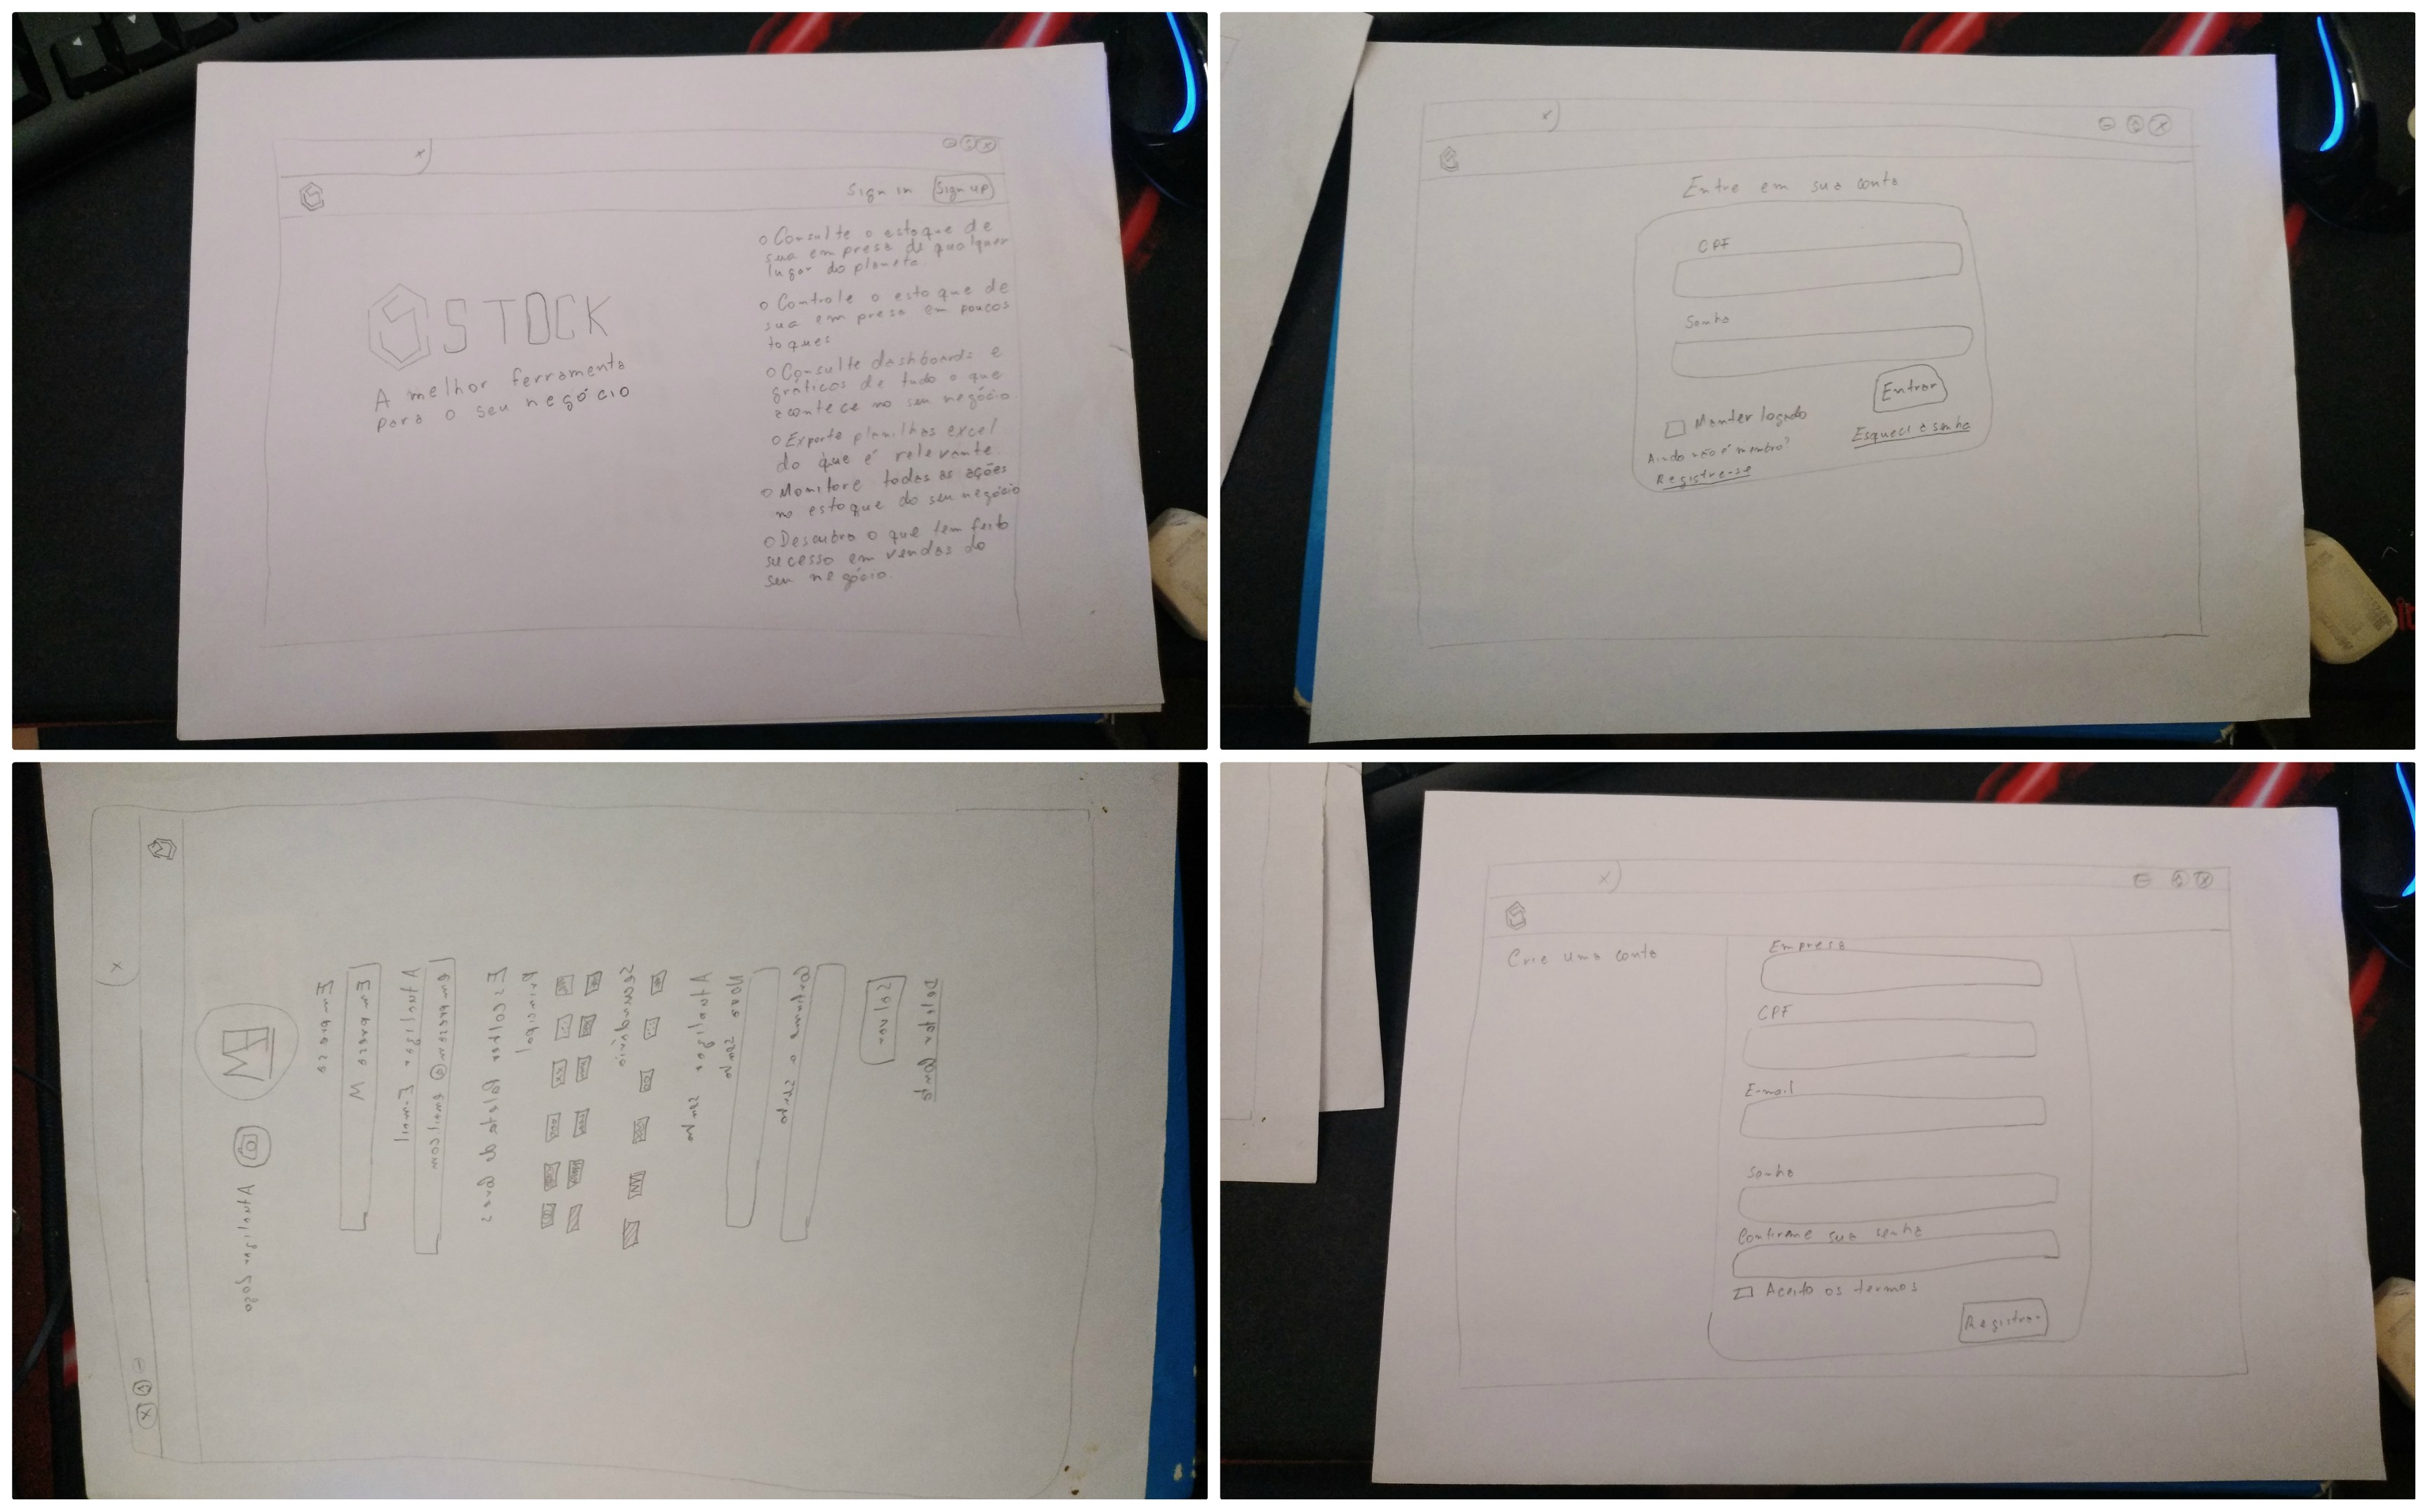 Sign in Sign up
STOCK
A melhor ferramenta
para o seu negócio
Consulte o estoque de
sua empresa de qualquer
lugar do planeta.
Controle o estoque de
sua empresa em poucos
toques
Consulte dashboards e
gráficos de tudo o que
acontece no seu negócio.
Exporte planilhas excel
do que é relevante.
Monitore todas as ações
no estoque do seu negócio
Descubra o que tem feito
sucesso em vendas do
seu negócio.
Entre em sua conta
CPF
Senha
Entrar
Manter logado
Esqueci a senha
Ainda não é membro?
Registre-se
M
Atualizar Logo
Empresa
Empresa M
Atualizar E-mail
empresam@email.com
Escolher Paleta de Cores
Principal
Secundário
Atualizar senha
Nova senha
Confirme a senha
Salvar
Deletar Conta
Crie uma conta
Empresa
CPF
E-mail
Senha
Confirme sua senha
Aceito os termos
Registrar